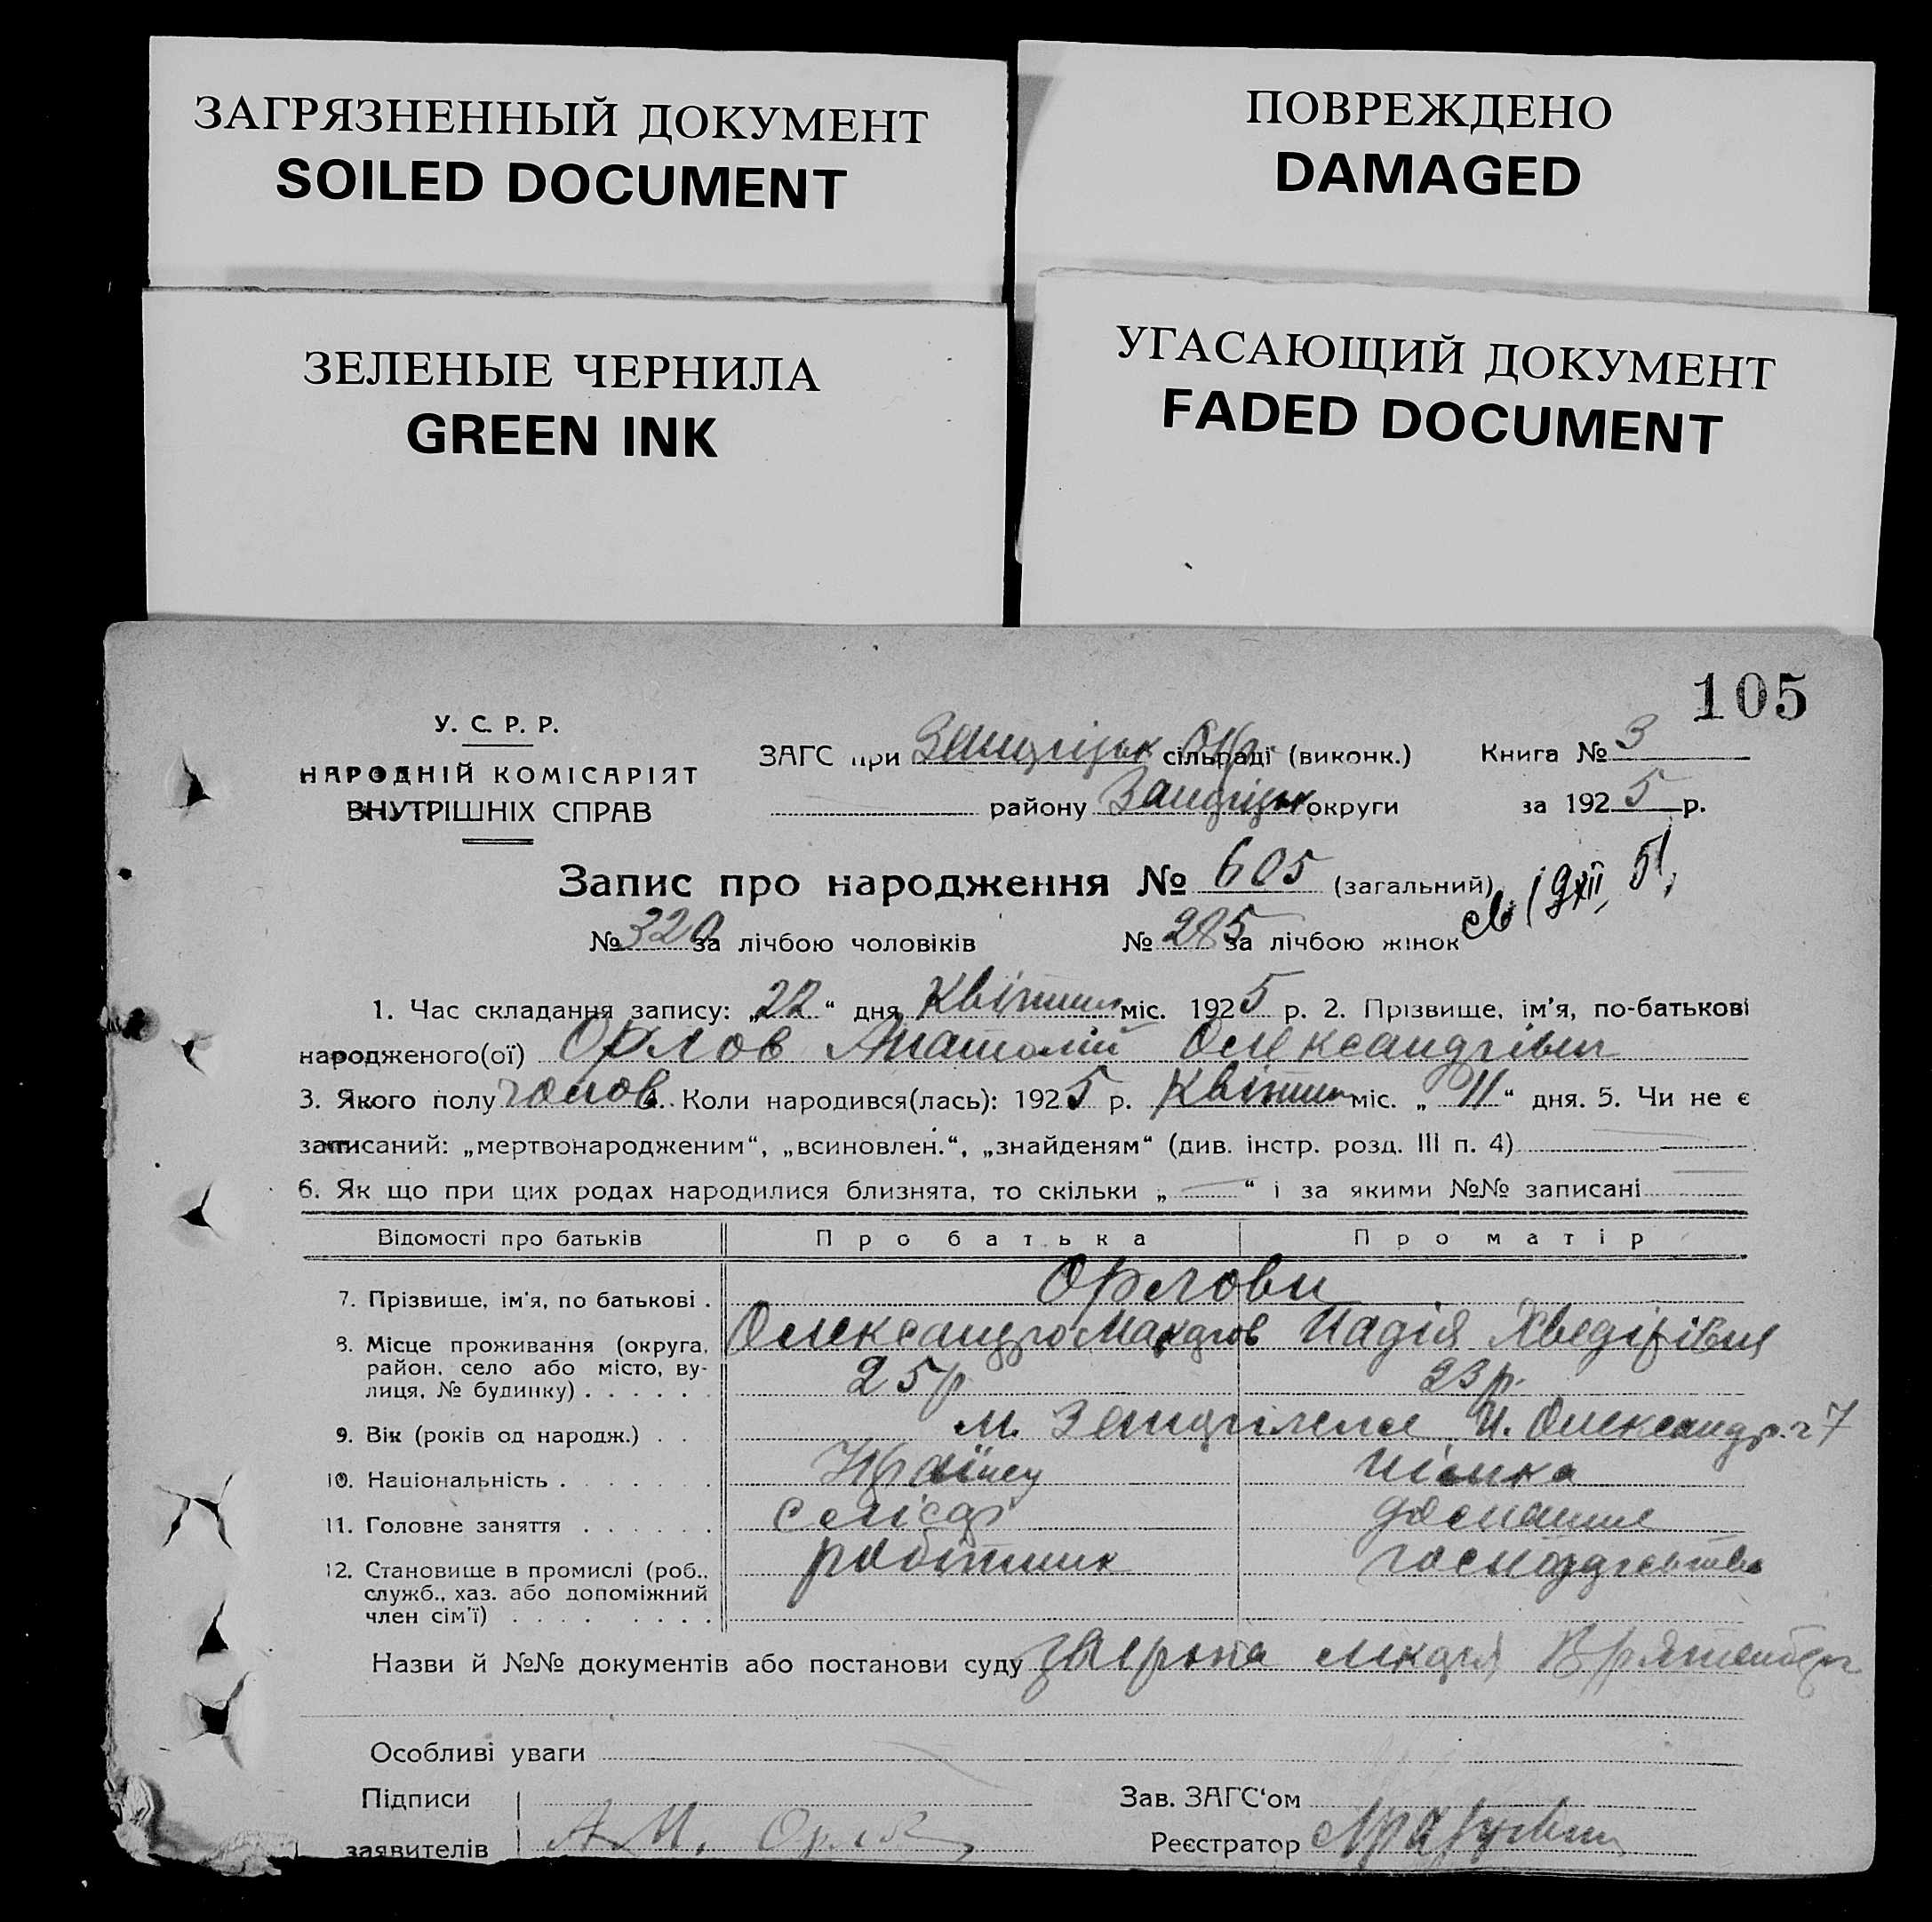 ЗАГРЯЗНЕННЫЙ ДОКУМЕНТ
SOILED DOCUMENT
ПОВРЕЖДЕНО
DAMAGED
ЗЕЛЕНЫЕ ЧЕРНИЛА
GREEN INK
УГАСАЮЩИЙ ДОКУМЕНТ
FADED DOCUMENT
105
У. С. Р. Р.
НАРОДНІЙ КОМІСАРІЯТ
ВНУТРІШНІХ СПРАВ
ЗАГС при сільраді (виконк.) Книга № 3
району округи за 1925 р.
Запис про народження № 605 (загальний)
№ 320 за лічбою чоловіків № 285 за лічбою жінок
1. Час складання запису: „22“ дня Квітня міс. 1925 р. 2. Прізвище, ім'я, по-батькові
народженого(ої) Орлов Анатолій Олександрівич
3. Якого полу чолов. 4. Коли народився(лась): 1925 р. Квітня міс. „11“ дня. 5. Чи не є
записаний: „мертвонародженим“, „всиновлен.“, „знайденям“ (див. інстр. розд. III п. 4)
6. Як що при цих родах народилися близнята, то скільки „ “ і за якими №№ записані
Відомості про батьків Про батька Про матір
7. Прізвище, ім'я, по батькові . Орлови
8. Місце проживання (округа, Олександро Надія Хведірівна
район, село або місто, ву-
лиця, № будинку) . . . . . . 25 р. 23 р.
9. Вік (років од народж.) . . м.
10. Національність . . . . . . . німка
11. Головне заняття . . . . . . слюсар домашнє
12. Становище в промислі (роб., робітник господарство
служб., хаз. або допоміжний
член сім'ї) . . . . . . . .
Назви й №№ документів або постанови суду лікаря
Особливі уваги
Підписи Зав. ЗАГС'ом
заявителів А. М. Орлов Реєстратор